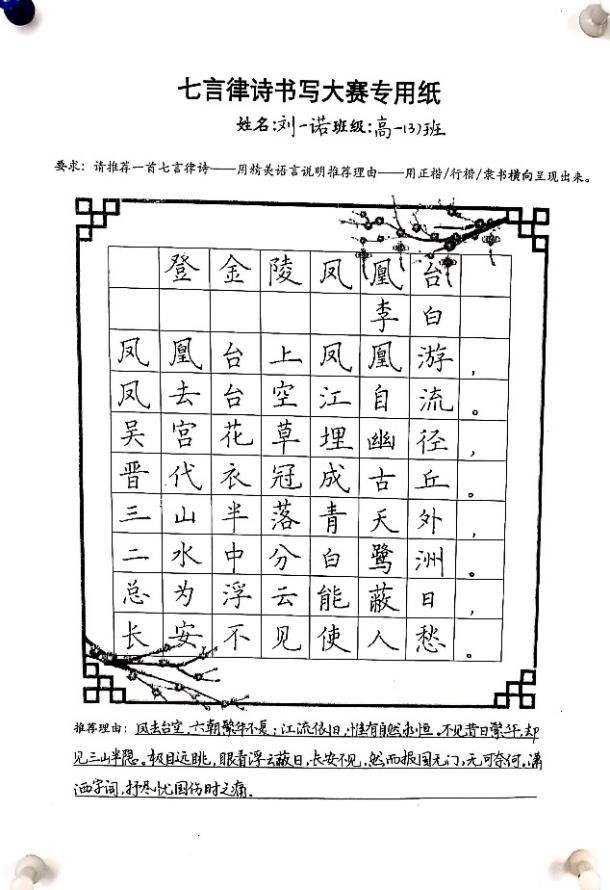 七言律诗书写大赛专用纸
姓名:刘一诺班级:高一(3)班
要求:请推荐一首七言律诗——用精美语言说明推荐理由——用正楷/行楷/隶书横向呈现出来。
登金陵凤凰台
李白
凤凰台上凤凰游,
凤去台空江自流。
吴宫花草埋幽径,
晋代衣冠成古丘。
三山半落青天外,
二水中分白鹭洲。
总为浮云能蔽日,
长安不见使人愁。
推荐理由:凤去台空,六朝繁华不复;江流依旧,惟有自然永恒。不见昔日繁华,却
见三山半隐。极目远眺,眼看浮云蔽日,长安不见,然而报国无门,无可奈何。潇
洒字词,抒尽忧国伤时之痛。